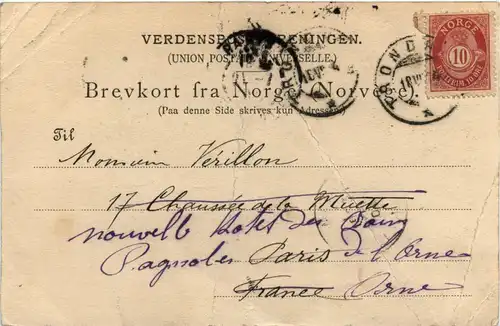 VERDENSPOSTFORENINGEN.
(UNION POSTALE UNIVERSELLE.)
Brevkort fra Norge (Norvège).
(Paa denne Side skrives kun Adressen.)
NORGE
10
Til
Monsieur Vérillon
17 Chaussée de la Muette
nouvelle hotel des Bains
Bagnoles Paris de l'Orne
France Orne